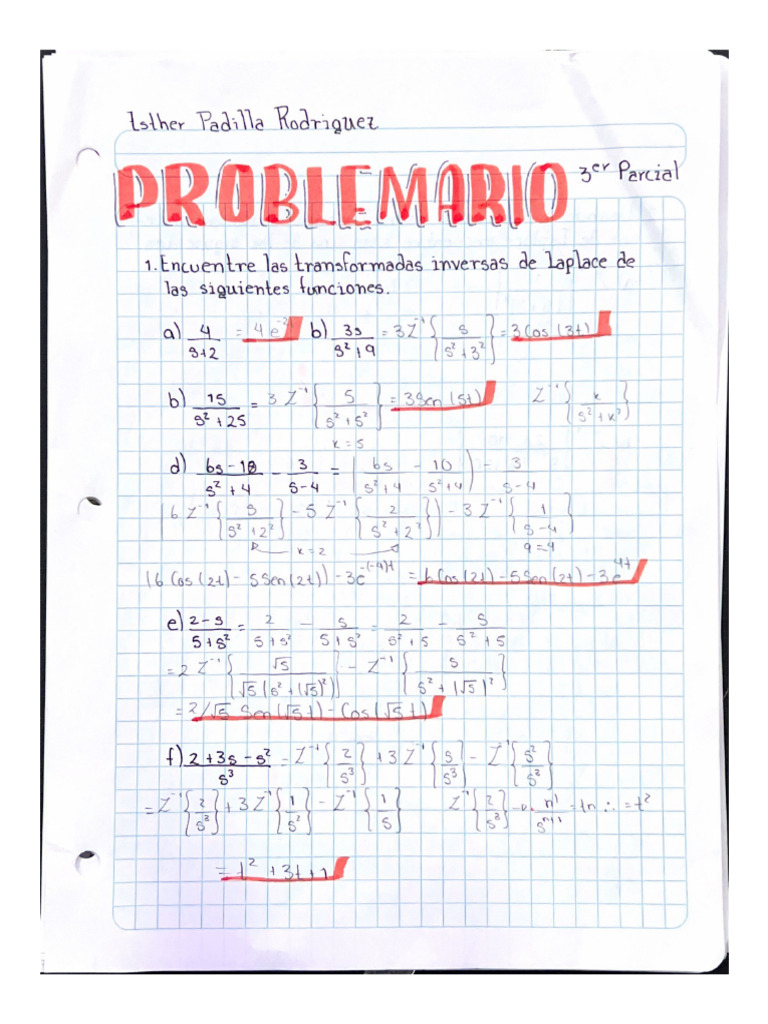 Esther Padilla Rodriguez
PROBLEMARIO 3er Parcial
1. Encuentre las transformadas inversas de Laplace de
las siguientes funciones.
a) 4/(s+2) = 4e^-2t b) 3s/(s²+9) = 3 Z⁻¹{s/(s²+3²)} = 3Cos(3t)
b) 15/(s²+25) = 3 Z⁻¹{5/(s²+5²)} = 3Sen(5t) Z⁻¹{k/(s²+k²)}
k=5
d) (6s-10)/(s²+4) - 3/(s-4) = (6s/(s²+4) - 10/(s²+4)) - 3/(s-4)
(6 Z⁻¹{s/(s²+2²)} - 5 Z⁻¹{2/(s²+2²)}) - 3 Z⁻¹{1/(s-4)}
k=2 a=4
(6 Cos(2t) - 5Sen(2t)) - 3e^-(-4)t = 6Cos(2t) - 5Sen(2t) - 3e^4t
e) (2-s)/(5+s²) = 2/(5+s²) - s/(5+s²) = 2/(s²+5) - s/(s²+5)
= 2 Z⁻¹{√5/(√5(s²+(√5)²))} - Z⁻¹{s/(s²+(√5)²)}
= 2/√5 Sen(√5t) - Cos(√5t)
f) (2+3s-s²)/s³ = Z⁻¹{2/s³} + 3 Z⁻¹{s/s³} - Z⁻¹{s²/s³}
= Z⁻¹{2/s³} + 3 Z⁻¹{1/s²} - Z⁻¹{1/s} Z⁻¹{2/s³} → n!/s^n+1 = t^n ∴ = t²
= t² + 3t + 1